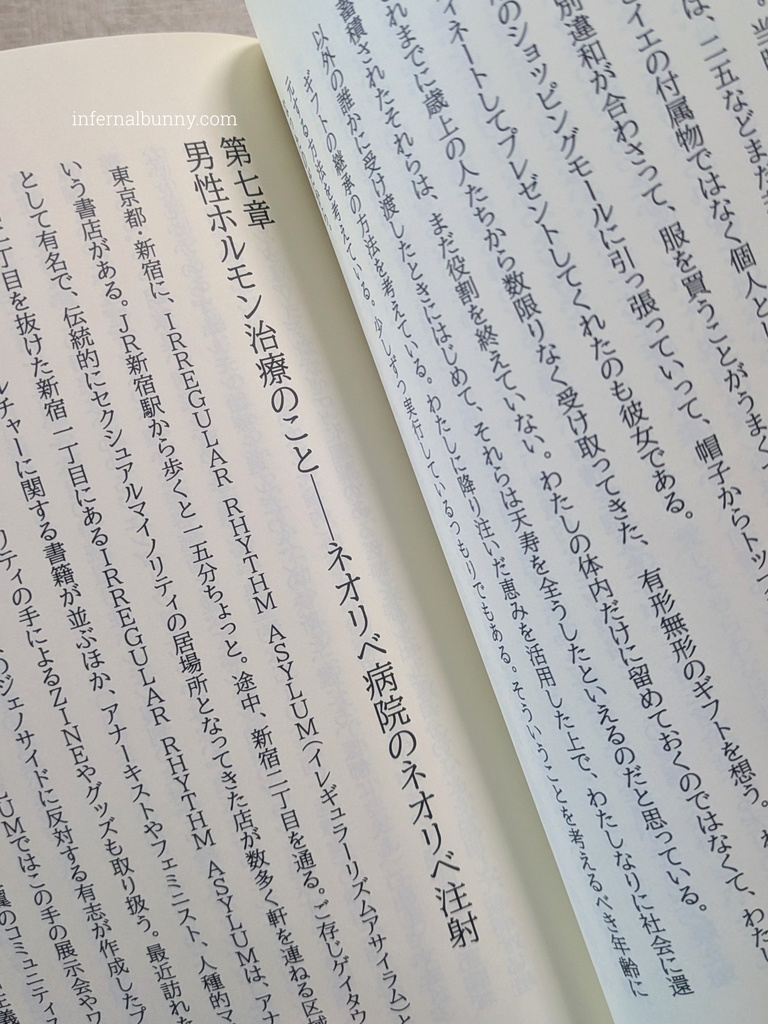 infernalbunny.com
。当時
は、二五などまだ
イエの付属物ではなく個人とし
別違和が合わさって、服を買うことがうまく
のショッピングモールに引っ張っていって、帽子からトップ
ィネートしてプレゼントしてくれたのも彼女である。
れまでに歳上の人たちから数限りなく受け取ってきた、有形無形のギフトを想う。
蓄積されたそれらは、まだ役割を終えていない。わたしの体内だけに留めておくのではなくて、わたし
以外の誰かに受け渡したときにはじめて、それらは天寿を全うしたといえるのだと思っている。
ギフトの継承の方法を考えている。わたしに降り注いだ恵みを活用した上で、わたしなりに社会に還
元する方法を考えている。少しずつ実行しているつもりでもある。そういうことを考えるべき年齢に
第七章
男性ホルモン治療のこと――ネオリベ病院のネオリベ注射
東京都・新宿に、IRREGULAR RHYTHM ASYLUM(イレギュラーリズムアサイラム)と
いう書店がある。JR新宿駅から歩くと一五分ちょっと。途中、新宿二丁目を通る。ご存じゲイタウ
として有名で、伝統的にセクシュアルマイノリティの居場所となってきた店が数多く軒を連ねる区域
二丁目を抜けた新宿一丁目にあるIRREGULAR RHYTHM ASYLUMは、アナ
ルチャーに関する書籍が並ぶほか、アナーキストやフェミニスト、人種的マ
リティの手によるZINEやグッズも取り扱う。最近訪れた
のジェノサイドに反対する有志が作成したプ
LUMではこの手の展示会やワ
翼のコミュニティス
主義